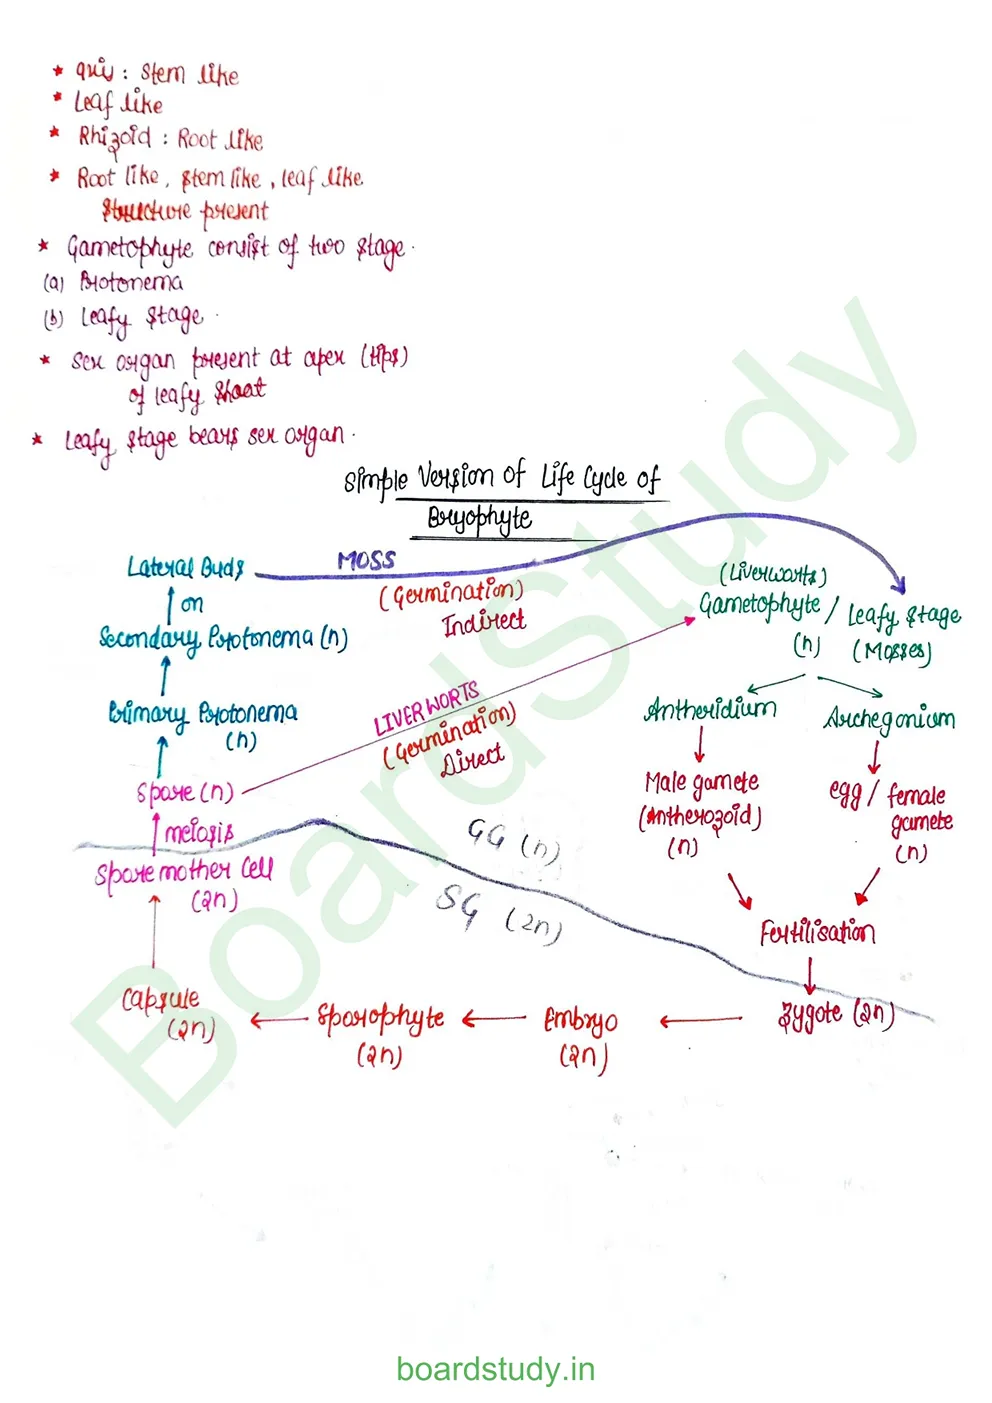 * axis : stem like
* Leaf like
* Rhizoid : Root like
* Root like, stem like, leaf like
structure present
* Gametophyte consist of two stage.
(a) Protonema
(b) Leafy stage.
* Sex organ present at apex (tips)
of leafy shoot
* Leafy stage bears sex organ.
Simple Version of Life Cycle of
Bryophyte
Lateral Buds
MOSS
(Germination)
Indirect
on
Secondary Protonema (n)
Primary Protonema
(n)
Spore (n)
LIVERWORTS
(Germination)
Direct
(Liverworts)
Gametophyte / Leafy stage
(n)
(Mosses)
Antheridium
Archegonium
Male gamete
(Antherozoid)
(n)
egg / female
gamete
(n)
meiosis
Spore mother Cell
(2n)
GG (n)
SG (2n)
Fertilisation
Zygote (2n)
Embryo
(2n)
Sporophyte
(2n)
Capsule
(2n)
BoardStudy
boardstudy.in